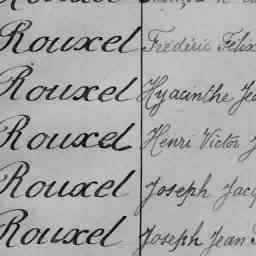 Rouxel Frédéric Felix
Rouxel Hyacinthe Jea
Rouxel Henri Victor J
Rouxel Joseph Jacq
Rouxel Joseph Jean